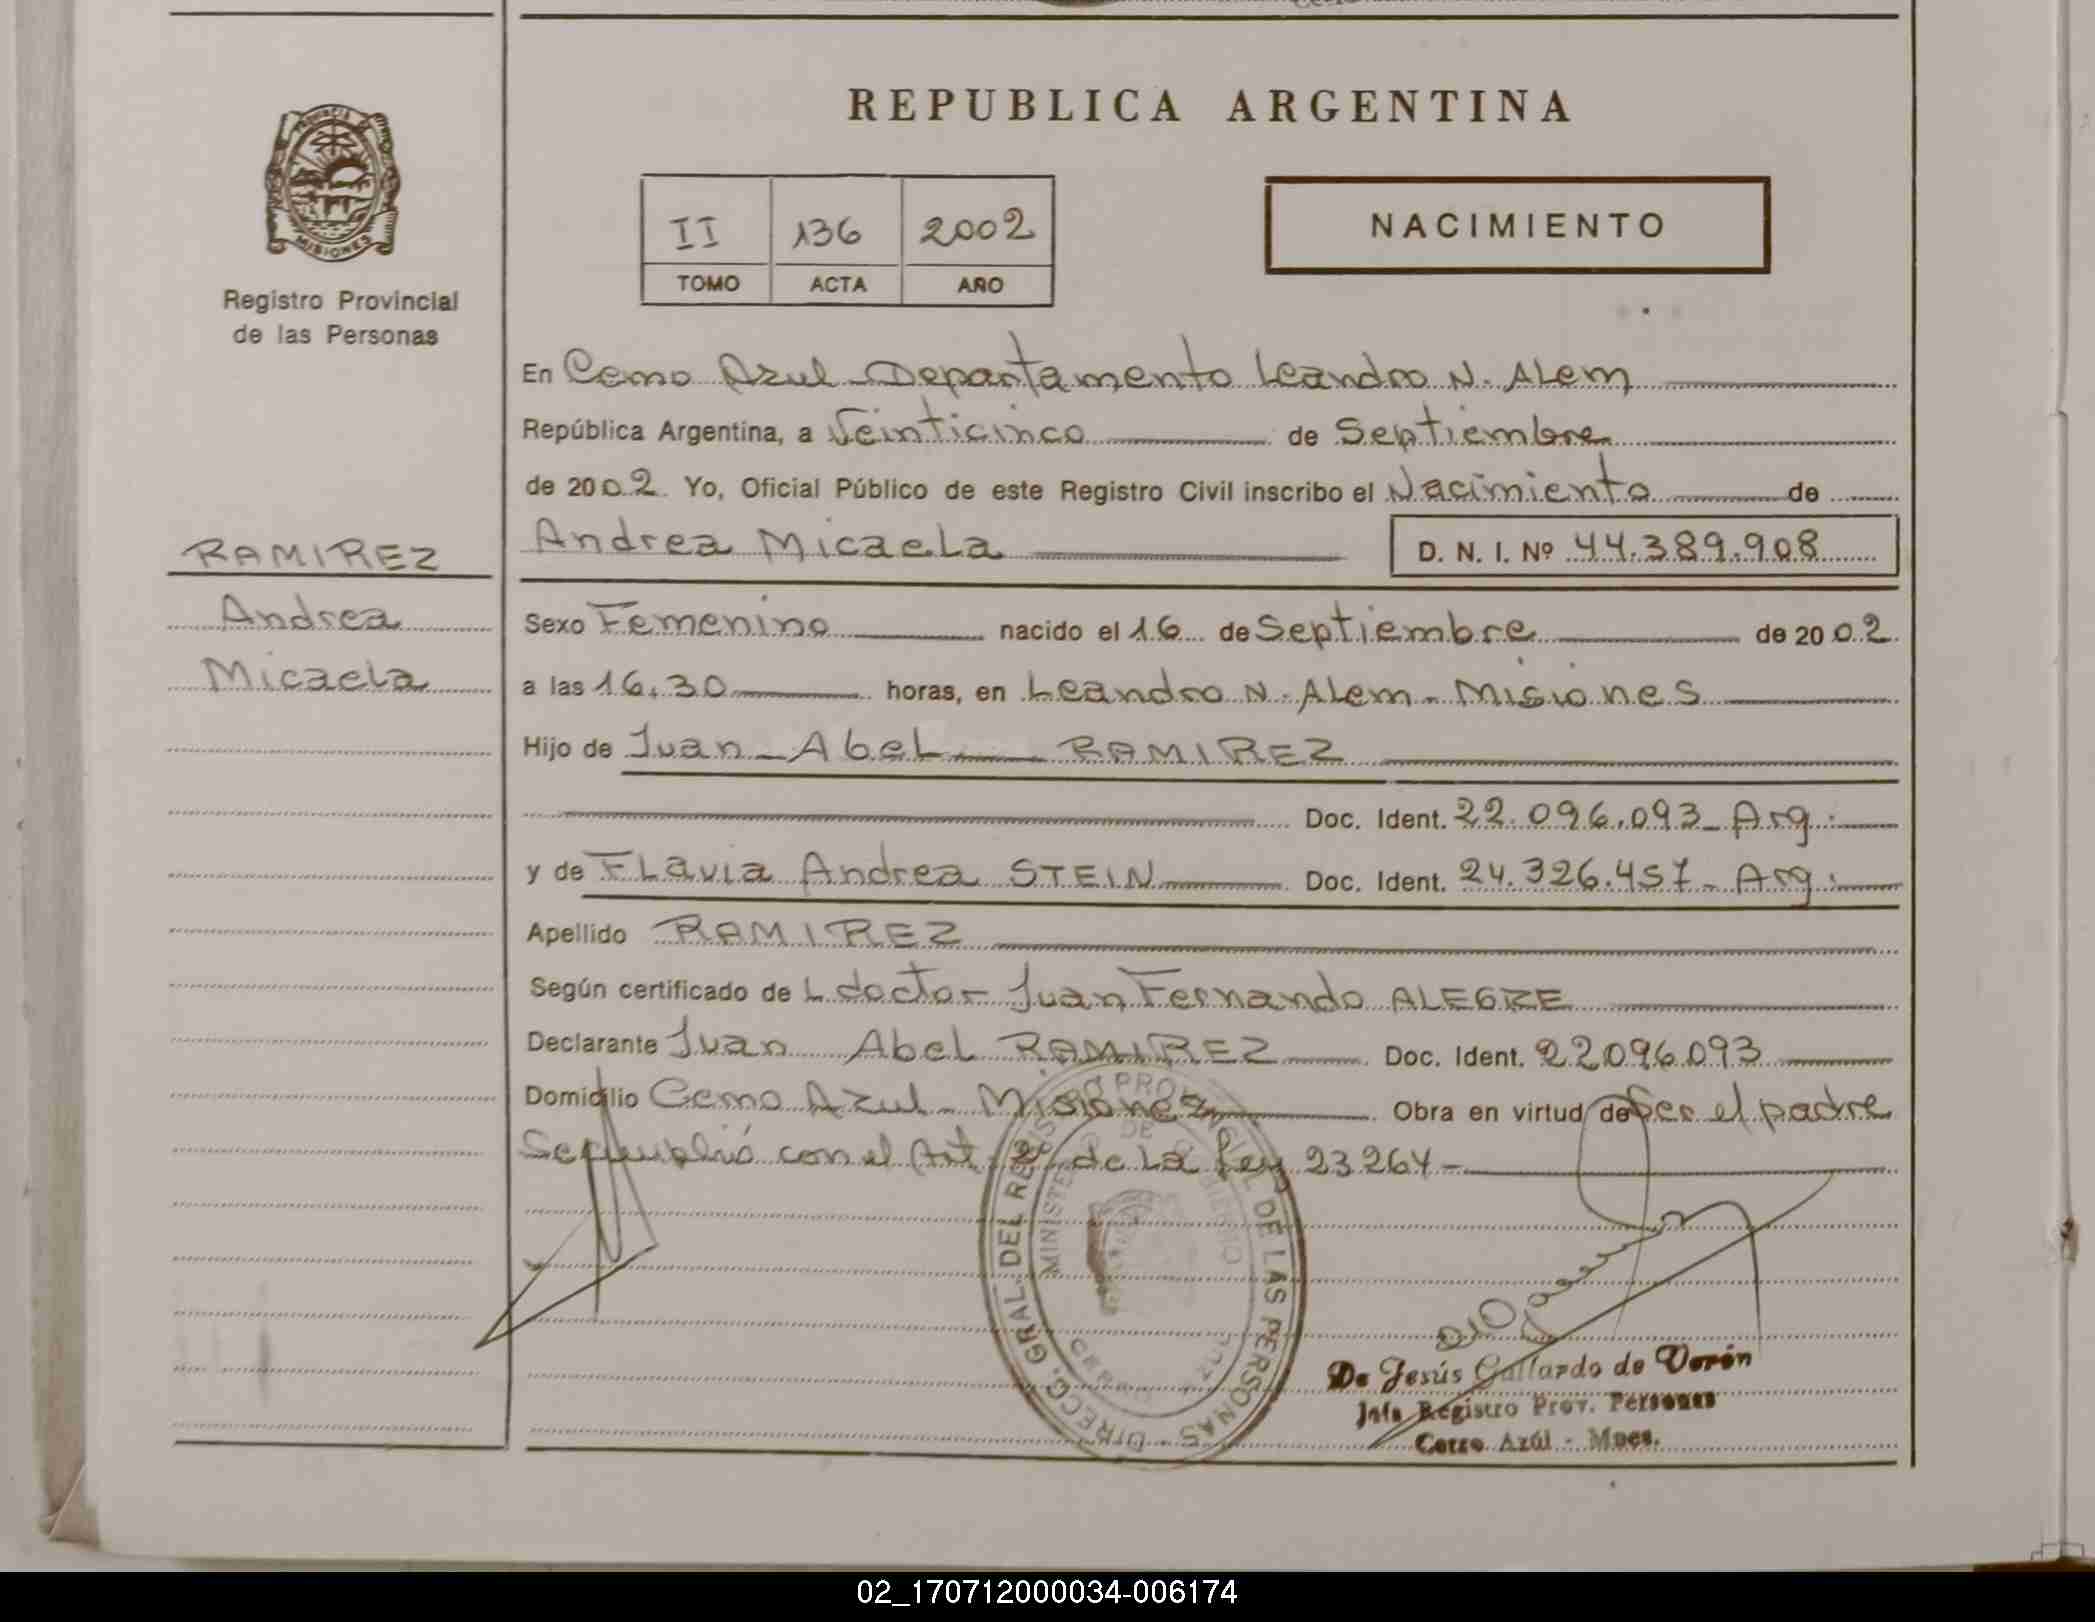 REPUBLICA ARGENTINA
PROVINCIA DE
MISIONES
Registro Provincial
de las Personas
II 136 2002
TOMO ACTA AÑO
NACIMIENTO
En Cerro Azul Departamento Leandro N. Alem
República Argentina, a Veinticinco de Septiembre
de 2002. Yo, Oficial Público de este Registro Civil inscribo el Nacimiento de
RAMIREZ
Andrea Micaela D. N. I. Nº 44.389.908
Andrea
Sexo Femenino nacido el 16 de Septiembre de 2002
Micaela
a las 16,30 horas, en Leandro N. Alem - Misiones
Hijo de Juan Abel RAMIREZ
Doc. Ident. 22.096.093 - Arg.
y de Flavia Andrea STEIN Doc. Ident. 24.326.457 - Arg.
Apellido RAMIREZ
Según certificado de L doctor Juan Fernando ALEGRE
Declarante Juan Abel RAMIREZ Doc. Ident. 22096093
Domicilio Cerro Azul - Misiones Obra en virtud de ser el padre
Se cumplió con el Art. 2º de la Ley 23264 -
DIRECC. GRAL. DEL REGISTRO PROVINCIAL DE LAS PERSONAS
MINISTERIO DE GOBIERNO
CERRO AZUL
De Jesús Gallardo de Verón
Jefa Registro Prov. Personas
Cerro Azúl - Mnes.
02_170712000034-006174